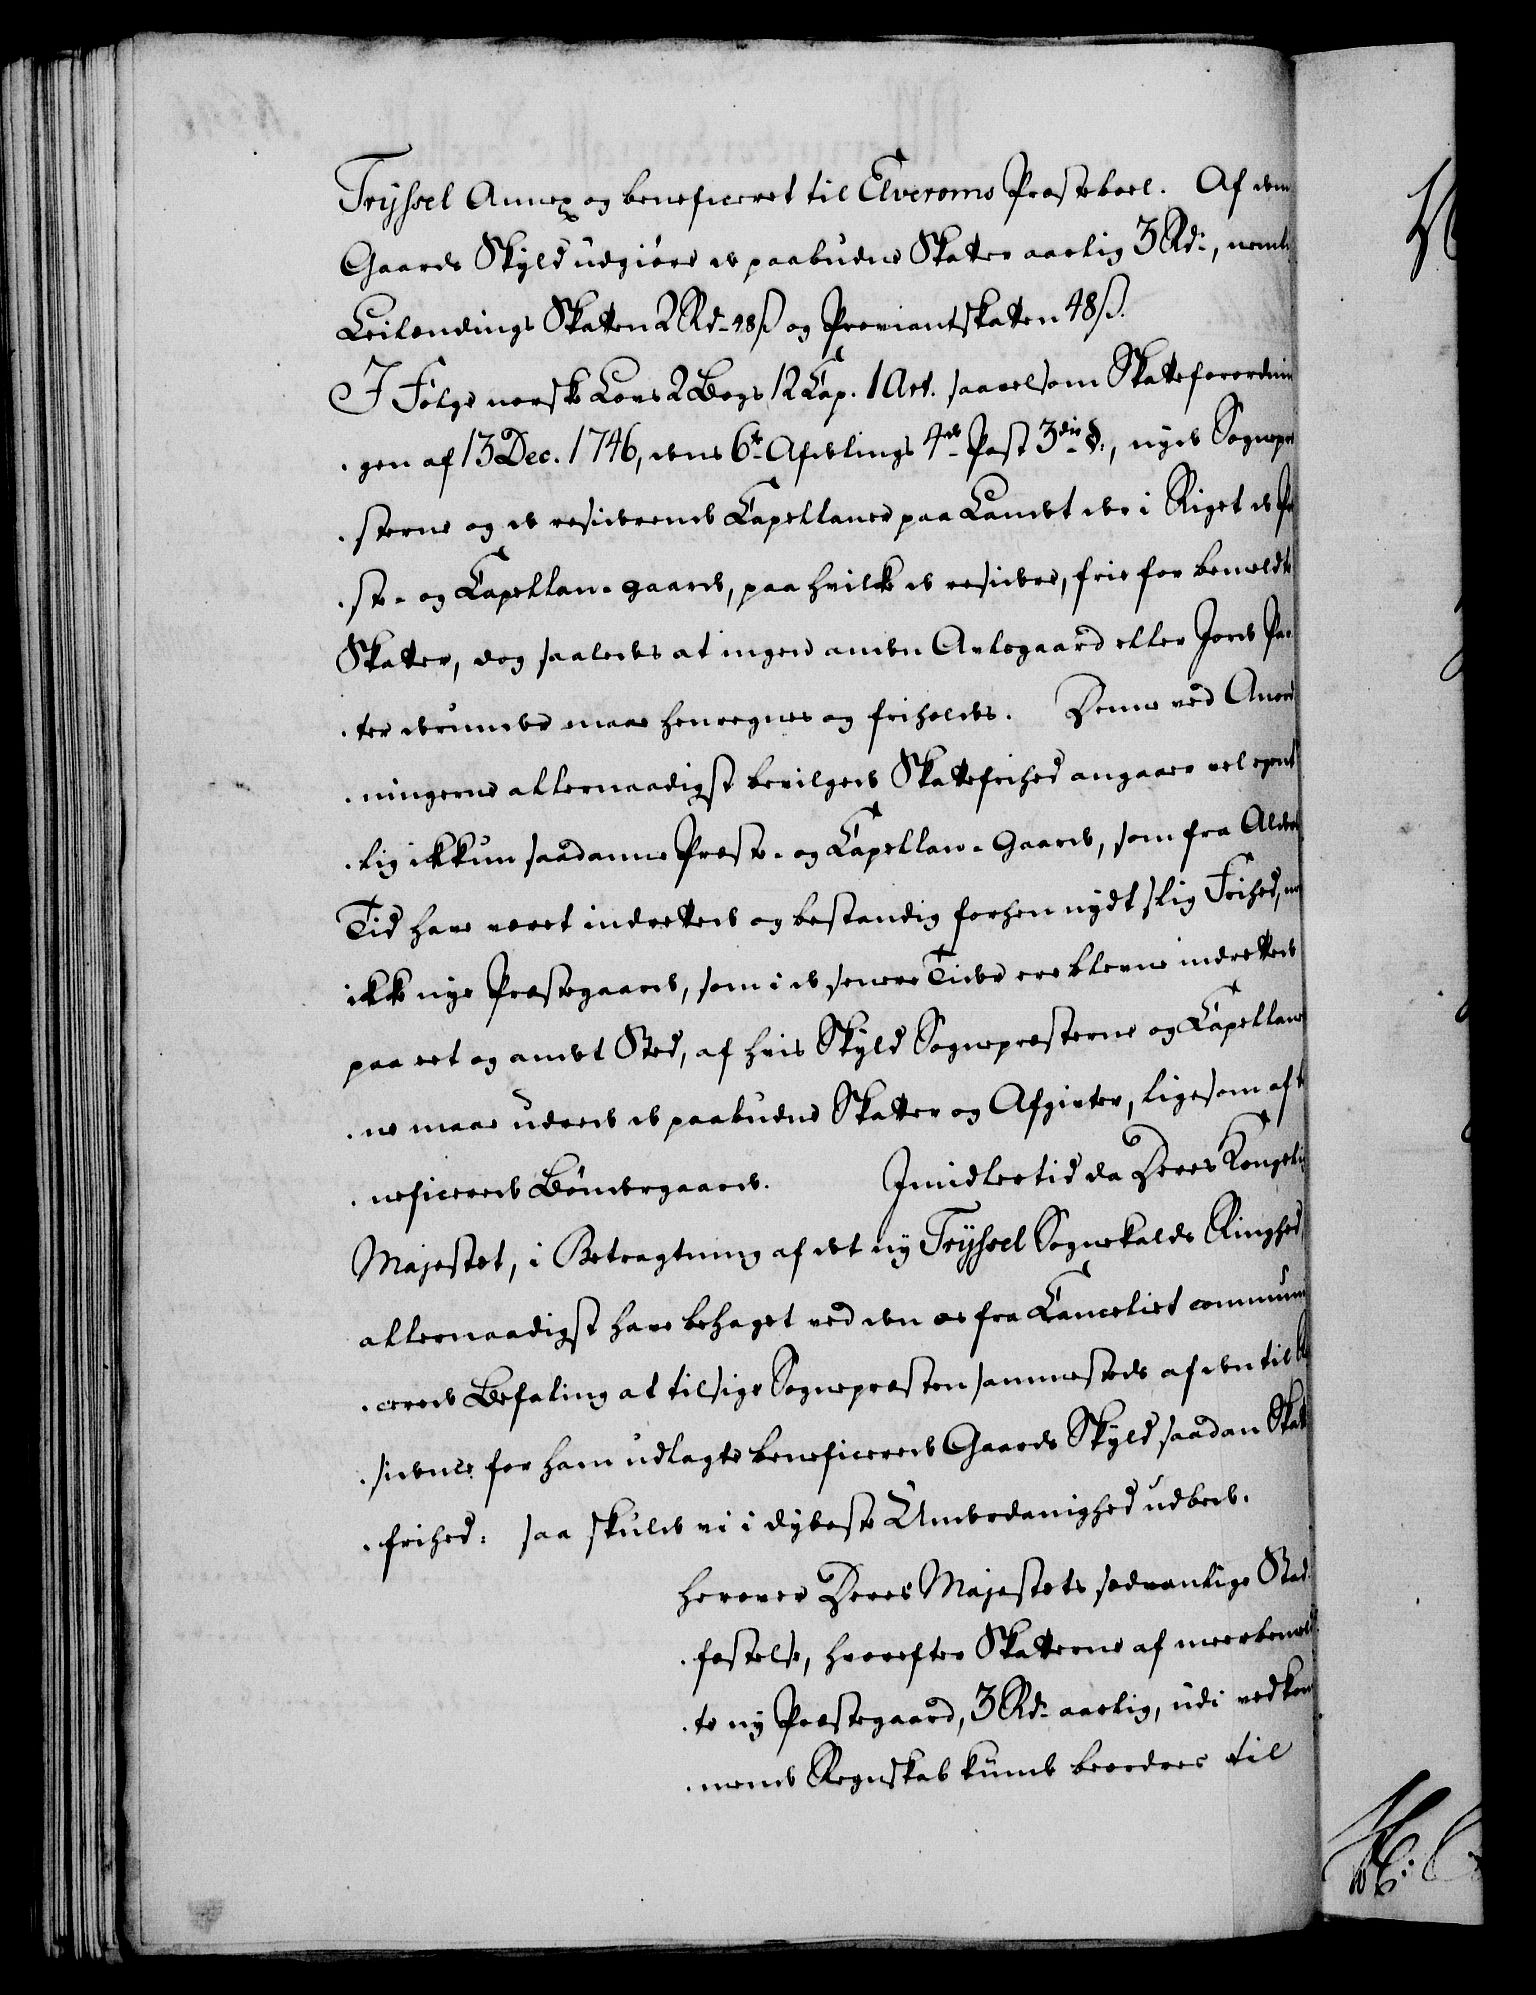 Tryssel Annex og beneficeret til Elveroms Præsteboel. Af denn
Gaards Skyld udgiøre de paabudne Skatter aarlig 3 Rd:, neml:
Leilændings Skatten 2 Rd. 48 ß og Proviantskatten 48 ß.
I Følge norske Lovs 2 Bogs 12 Cap. 1 Art. saavelsom Skatteforordnin
gen af 13 Dec. 1746, dens 6te Afdelings 4de Post 3die §:, nyde Sognepræ
sterne og de residerende Capellaner paa Landet der i Riget de Præ
ste- og Capellan-gaarde, paa hvilke de residere, frie for bemeldte
Skatter, dog saaledes at ingen anden Avlsgaard eller Jorde Par
ter derunder maae henregnes og friholdes. Denne ved Anord
ningerne allernaadigst bevilgede Skattefrihed angaaer vel egent
lig ikkun saadanne Præste- og Capellan-Gaarde, som fra Alders
Tid have været indrettede og bestandig forhen nydt slig Frihed, men
ikke nye Præstegaarde, som i de senere Tider ere blevne indrettede
paa eet og andet Sted, af hvis Skyld Sognepræsterne og Capellaner
ne maae udrede de paabudne Skatter og Afgivter, ligesom af be
neficerede Bøndergaarde. Imidlertid da Deres Kongelig
Majestet, i Betragtning af det ny Tryssel Sognekalds Ringhed,
allernaadigst have behaget ved den os fra Canceliet communi
cerede Befaling at tilsige Sognepræsten sammesteds af den til Re
sidence for ham udlagte beneficerede Gaards Skyld saadan Skatte
frihed: saa skulde vi i dybeste Underdanighed udbede
herover Deres Majestets sædvanlige Stad
fæstelse, hvorefter Skatterne af meerbemeld
te ny Præstegaard, 3 Rd: aarlig, udi vedkom
mende Regnskab kunde beordres til